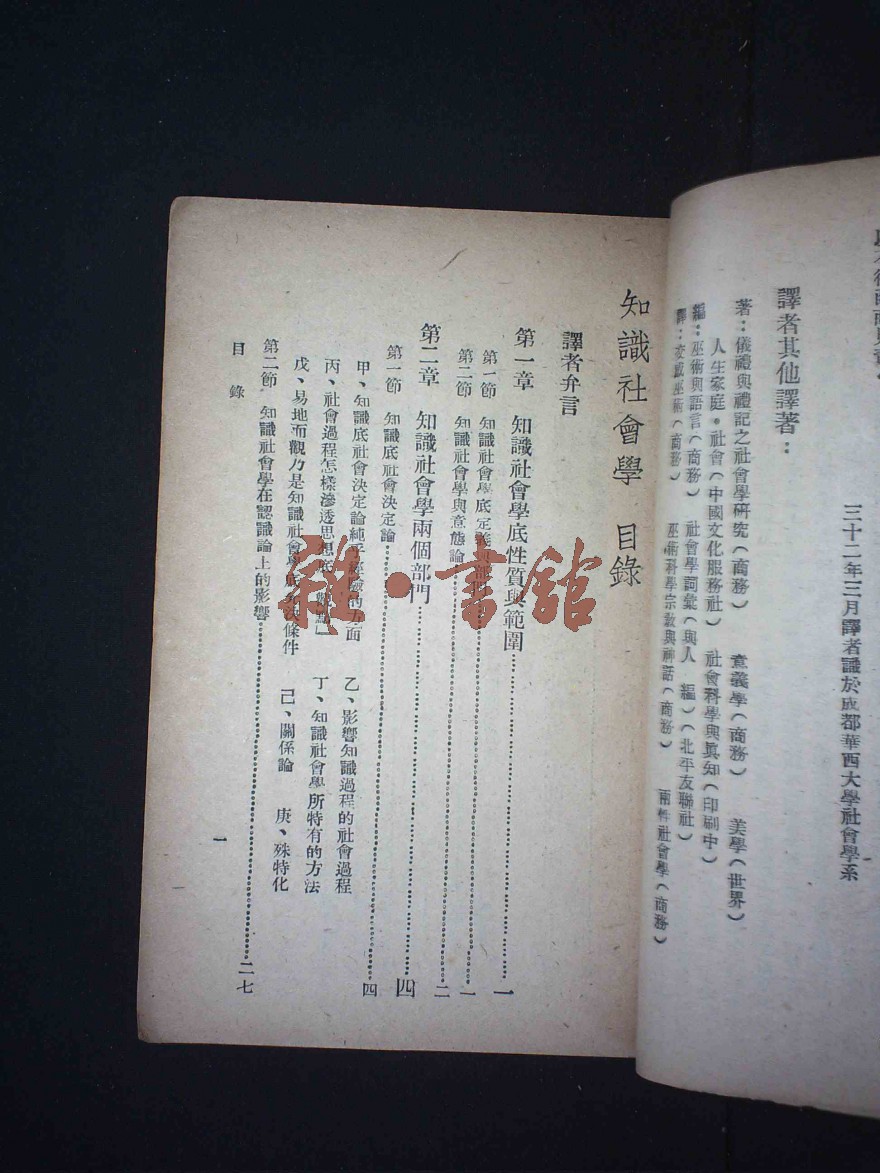 三十二年三月譯者識於成都華西大學社會學系
譯者其他譯著：
著：儀禮與禮記之社會學研究（商務）　意義學（商務）　美學（世界）
人生家庭。社會（中國文化服務社）　社會科學與眞知（印刷中）
編：巫術與語言（商務）　社會學詞彙（與人　編）（北平友聯社）
譯：交感巫術（商務）　巫術科學宗敎與神話（商務）　兩性社會學（商務）
知識社會學　目錄
譯者弁言
第一章　知識社會學底性質與範圍……一
第一節　知識社會學底定義與部門……一
第二節　知識社會學與意態論……二
第二章　知識社會學兩個部門……四
第一節　知識底社會決定論……四
甲、知識底社會決定論純乎經驗的方面　乙、影響知識過程的社會過程
丙、社會過程怎樣滲透思想底「觀點」　丁、知識社會學所特有的方法
戊、易地而觀力是知識社會學底先決條件　己、關係論　庚、殊特化
第二節　知識社會學在認識論上的影響……二七
目錄
一
雜·書舘